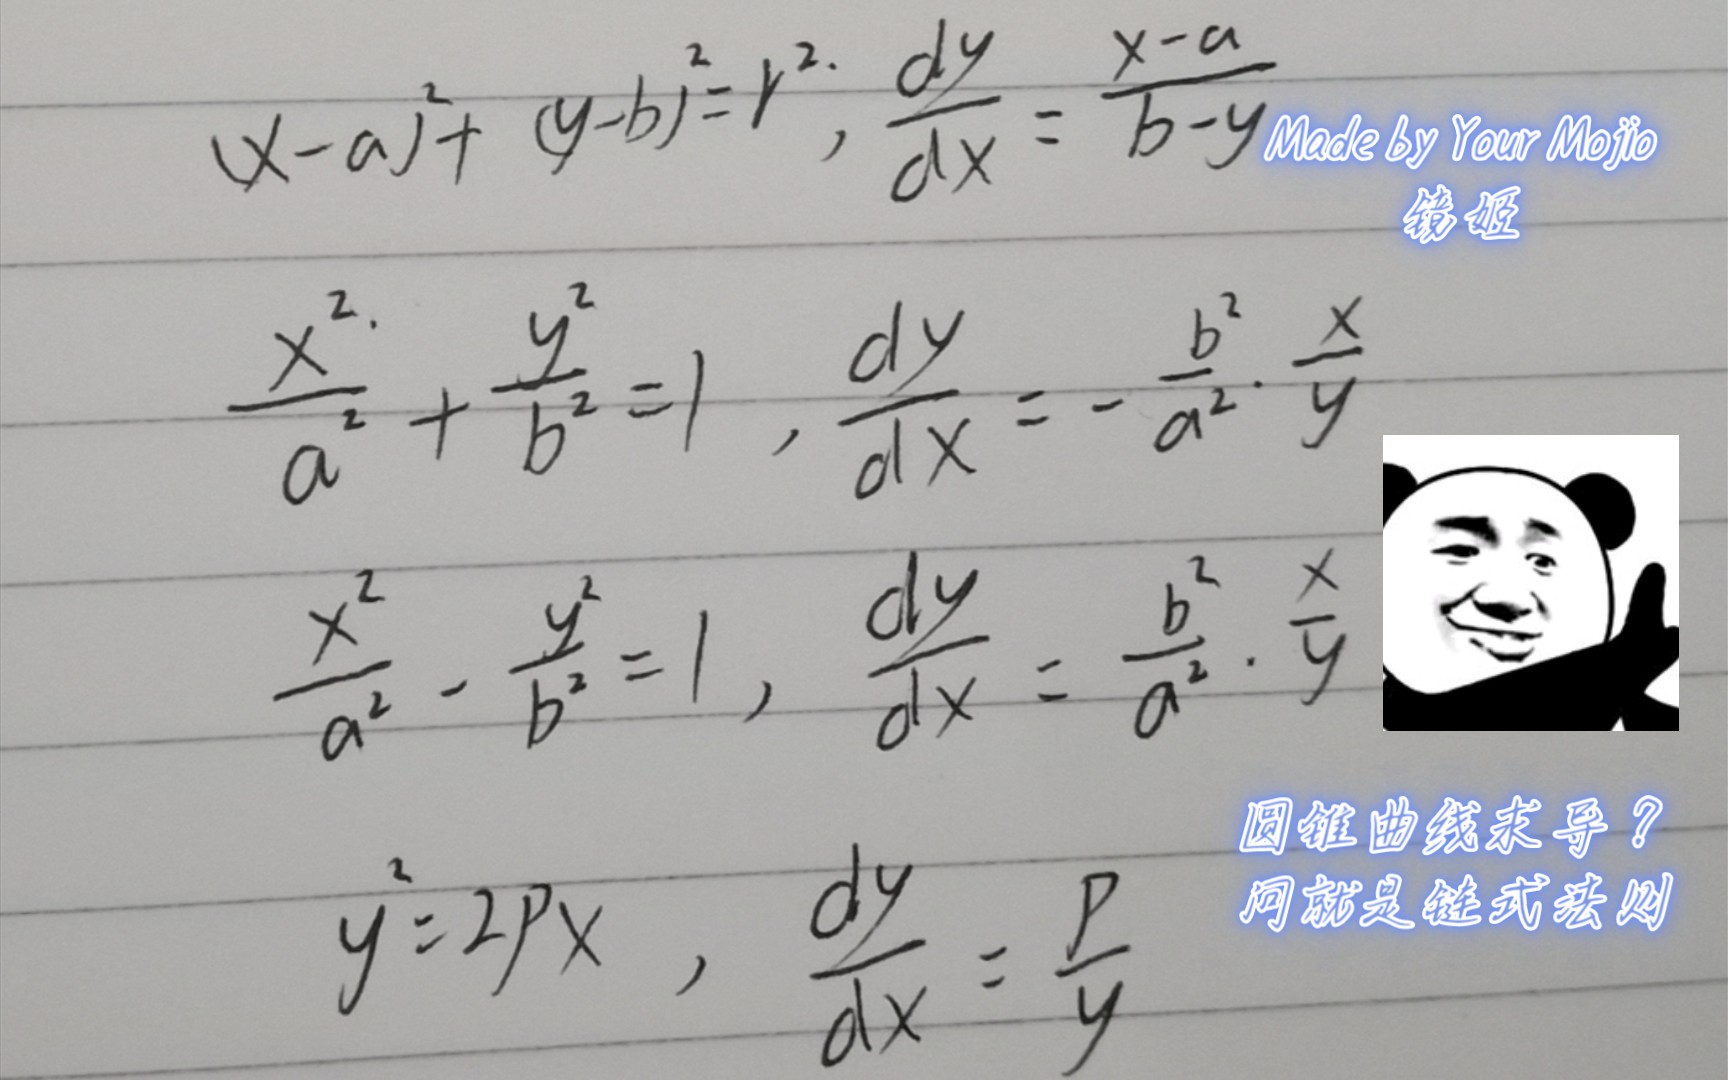 (x-a)²+(y-b)²=r², dy/dx = (x-a)/(b-y)
Made by Your Mojio
镜姬
x²/a² + y²/b² = 1, dy/dx = - b²/a² · x/y
x²/a² - y²/b² = 1, dy/dx = b²/a² · x/y
圆锥曲线求导？
问就是链式法则
y²=2px, dy/dx = p/y